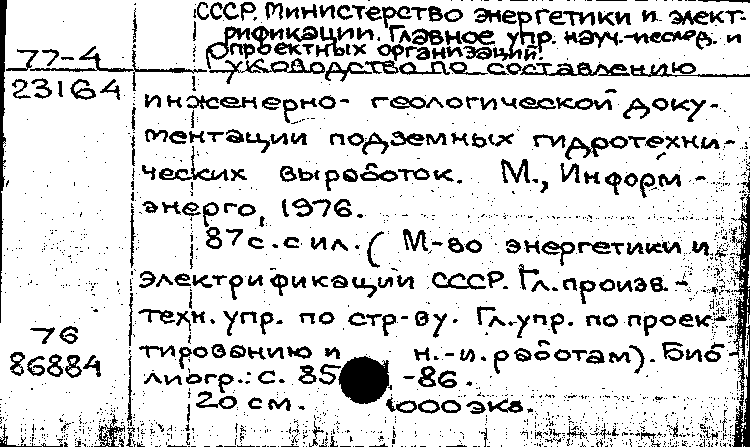 СССР. Министерство энергетики и элект-
рификации. Главное упр. науч.-исслед. и
проектных организаций.
77-4
Руководство по составлению
23164
инженерно-геологической доку-
ментации подземных гидротехни-
ческих выработок. М., Информ-
энерго, 1976.
87 с. с ил. (М-во энергетики и
электрификации СССР. Гл. произв.-
техн. упр. по стр-ву. Гл. упр. по проек-
76
тированию и н.-и. работам). Биб-
86884
лиогр.: с. 85-86.
20 см. 1000 экз.